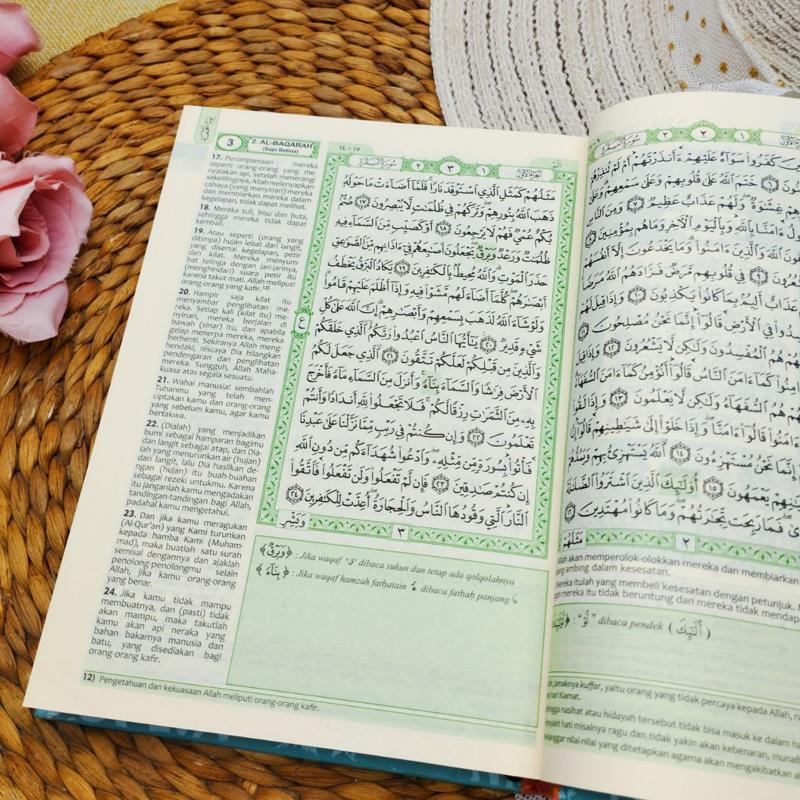 3
2. AL-BAQARAH
(Sapi Betina)
17. Perumpamaan mereka
seperti orang-orang yang me-
nyalakan api, setelah menerangi
sekelilingnya, Allah melenyapkan
cahaya (yang menyinari) mereka
dan membiarkan mereka dalam
kegelapan, tidak dapat melihat.
18. Mereka tuli, bisu dan buta,
sehingga mereka tidak dapat
kembali.
19. Atau seperti (orang yang
ditimpa) hujan lebat dari langit,
yang disertai kegelapan, petir
dan kilat. Mereka menyum-
bat telinga dengan jari-jarinya,
(menghindari) suara petir itu
karena takut mati. Allah meliputi
orang-orang yang kafir.¹²⁾
20. Hampir saja kilat itu
menyambar penglihatan me-
reka. Setiap kali (kilat itu) me-
nyinari, mereka berjalan di
bawah (sinar) itu, dan apabila
gelap menerpa mereka, mereka
berhenti. Sekiranya Allah meng-
hendaki, niscaya Dia hilangkan
pendengaran dan penglihatan
mereka. Sungguh, Allah Maha-
kuasa atas segala sesuatu.
21. Wahai manusia! sembahlah
Tuhanmu yang telah men-
ciptakan kamu dan orang-orang
yang sebelum kamu, agar kamu
bertakwa.
22. (Dialah) yang menjadikan
bumi sebagai hamparan bagimu
dan langit sebagai atap, dan Dia-
lah yang menurunkan air (hujan)
dari langit, lalu Dia hasilkan de-
ngan (hujan) itu buah-buahan
sebagai rezeki untukmu. Karena
itu janganlah kamu mengadakan
tandingan-tandingan bagi Allah,
padahal kamu mengetahui.
23. Dan jika kamu meragukan
(Al-Qur'an) yang Kami turunkan
kepada hamba Kami (Muham-
mad), maka buatlah satu surah
semisal dengannya dan ajaklah
penolong-penolongmu selain
Allah, jika kamu orang-orang
yang benar.
24. Jika kamu tidak mampu
membuatnya, dan (pasti) tidak
akan mampu, maka takutlah
kamu akan api neraka yang
bahan bakarnya manusia dan
batu, yang disediakan bagi
orang-orang kafir.
١٧ - ٢٤
سورة البقرة ٢ ٣ ١ الجزء الأول
مَثَلُهُمْ كَمَثَلِ الَّذِى اسْتَوْقَدَ نَارًا فَلَمَّآ أَضَآءَتْ مَا حَوْلَهُ
ذَهَبَ اللّٰهُ بِنُورِهِمْ وَتَرَكَهُمْ فِى ظُلُمٰتٍ لَا يُبْصِرُونَ ۝١٧ صُمٌّۢ
بُكْمٌ عُمْىٌ فَهُمْ لَا يَرْجِعُونَ ۝١٨ أَوْ كَصَيِّبٍ مِّنَ السَّمَآءِ فِيهِ
ظُلُمٰتٌ وَرَعْدٌ وَبَرْقٌ يَجْعَلُونَ أَصٰبِعَهُمْ فِىٓ ءَاذَانِهِم مِّنَ الصَّوٰعِقِ
حَذَرَ الْمَوْتِ وَاللّٰهُ مُحِيطٌۢ بِالْكٰفِرِينَ ۝١٩ يَكَادُ الْبَرْقُ يَخْطَفُ
أَبْصٰرَهُمْ كُلَّمَآ أَضَآءَ لَهُم مَّشَوْا فِيهِ وَإِذَآ أَظْلَمَ عَلَيْهِمْ قَامُوا
وَلَوْ شَآءَ اللّٰهُ لَذَهَبَ بِسَمْعِهِمْ وَأَبْصٰرِهِمْ إِنَّ اللّٰهَ عَلٰى كُلِّ
شَىْءٍ قَدِيرٌ ۝٢٠ يٰٓأَيُّهَا النَّاسُ اعْبُدُوا رَبَّكُمُ الَّذِى خَلَقَكُمْ
وَالَّذِينَ مِن قَبْلِكُمْ لَعَلَّكُمْ تَتَّقُونَ ۝٢١ الَّذِى جَعَلَ لَكُمُ
الْأَرْضَ فِرَاشًا وَالسَّمَآءَ بِنَآءً وَأَنزَلَ مِنَ السَّمَآءِ مَآءً فَأَخْرَجَ
بِهِ مِنَ الثَّمَرٰتِ رِزْقًا لَّكُمْ فَلَا تَجْعَلُوا لِلّٰهِ أَندَادًا وَأَنتُمْ
تَعْلَمُونَ ۝٢٢ وَإِن كُنتُمْ فِى رَيْبٍ مِّمَّا نَزَّلْنَا عَلٰى عَبْدِنَا
فَأْتُوا بِسُورَةٍ مِّن مِّثْلِهِ وَادْعُوا شُهَدَآءَكُم مِّن دُونِ اللّٰهِ
إِن كُنتُمْ صٰدِقِينَ ۝٢٣ فَإِن لَّمْ تَفْعَلُوا وَلَن تَفْعَلُوا فَاتَّقُوا
النَّارَ الَّتِى وَقُودُهَا النَّاسُ وَالْحِجَارَةُ أُعِدَّتْ لِلْكٰفِرِينَ ۝٢٤
ع
وَبَشِّرِ
٣
﴿وَبَرْقٌ﴾ : Jika waqaf "قٌ" dibaca sukun dan tetap ada qolqolahnya
﴿بِنَآءً﴾ : Jika waqaf hamzah fathatain ءً dibaca fathah panjang
12) Pengetahuan dan kekuasaan Allah meliputi orang-orang kafir.
سورة البقرة ٢ ٢ ١
كَفَرُوا سَوَآءٌ عَلَيْهِمْ ءَأَنذَرْتَهُمْ أَمْ لَمْ تُنذِرْهُمْ
خَتَمَ اللّٰهُ عَلٰى قُلُوبِهِمْ وَعَلٰى سَمْعِهِمْ وَعَلٰٓى
غِشٰوَةٌ وَلَهُمْ عَذَابٌ عَظِيمٌ ۝٧ وَمِنَ النَّاسِ
ءَامَنَّا بِاللّٰهِ وَبِالْيَوْمِ الْءَاخِرِ وَمَا هُم بِمُؤْمِنِينَ
اللّٰهَ وَالَّذِينَ ءَامَنُوا وَمَا يَخْدَعُونَ إِلَّآ أَنفُسَهُمْ
فِى قُلُوبِهِم مَّرَضٌ فَزَادَهُمُ اللّٰهُ مَرَضًا
عَذَابٌ أَلِيمٌۢ بِمَا كَانُوا يَكْذِبُونَ ۝١٠ وَإِذَا قِيلَ لَهُمْ
فِى الْأَرْضِ قَالُوٓا إِنَّمَا نَحْنُ مُصْلِحُونَ
هُمُ الْمُفْسِدُونَ وَلٰكِن لَّا يَشْعُرُونَ ۝١٢ وَإِذَا قِيلَ
كَمَآ ءَامَنَ النَّاسُ قَالُوٓا أَنُؤْمِنُ كَمَآ ءَامَنَ
هُمُ السُّفَهَآءُ وَلٰكِن لَّا يَعْلَمُونَ ۝١٣ وَإِذَا لَقُوا
ءَامَنُوا قَالُوٓا ءَامَنَّا وَإِذَا خَلَوْا إِلٰى شَيٰطِينِهِمْ قَالُوٓا
إِنَّمَا نَحْنُ مُسْتَهْزِءُونَ ۝١٤ اللّٰهُ يَسْتَهْزِئُ بِهِمْ وَيَمُدُّهُمْ
يَعْمَهُونَ ۝١٥ أُولٰٓئِكَ الَّذِينَ اشْتَرَوُا الضَّلٰلَةَ
فَمَا رَبِحَت تِّجٰرَتُهُمْ وَمَا كَانُوا مُهْتَدِينَ ۝١٦
مَثَلُهُمْ
٢
akan memperolok-olokkan mereka dan membiarkan
ambing dalam kesesatan.
Mereka itulah yang membeli kesesatan dengan petunjuk.
mereka itu tidak beruntung dan mereka tidak mendap
"أُو" dibaca pendek ( أُلَـٰٓئِكَ )
jamaknya kuffar, yaitu orang yang tidak percaya kepada Allah,
hari Kiamat.
nasihat atau hidayah tersebut tidak bisa masuk ke dalam
hati misalnya ragu dan tidak yakin akan kebenaran, munafi
nilai-nilai yang ditetapkan agama akan mengakibatkan